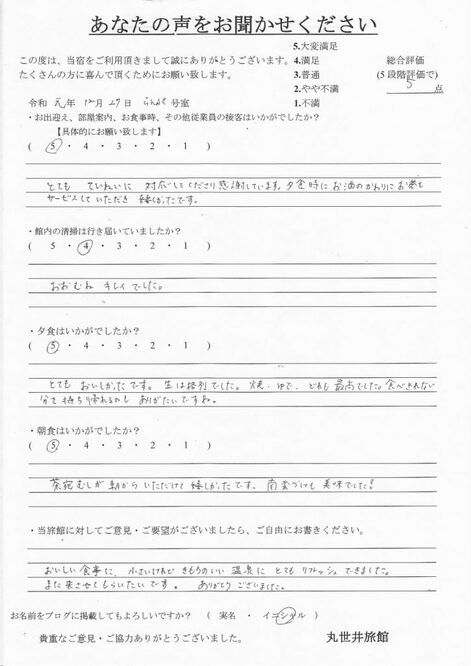 あなたの声をお聞かせください
5.大変満足
この度は、当宿をご利用頂きまして誠にありがとうございます。4.満足 総合評価
たくさんの方に喜んで頂くためにお願い致します。 3.普通 (5段階評価で)
2.やや不満 5 点
令和 元年 12月 27日 号室 1.不満
・お出迎え、部屋案内、お食事時、その他従業員の接客はいかがでしたか？
【具体的にお願い致します】
( 5 ・ 4 ・ 3 ・ 2 ・ 1 )
とても ていねいに 対応してくださり感謝しています。夕食時にお酒のかわりにお茶を
サービスしていただき 嬉しかたです。
・館内の清掃は行き届いていましたか？
( 5 ・ 4 ・ 3 ・ 2 ・ 1 )
おおむね キレイでした。
・夕食はいかがでしたか？
( 5 ・ 4 ・ 3 ・ 2 ・ 1 )
とても おいしかたです。生は格別でした。焼・ゆで、どれも 最高でした。食べきれない
分を持ち帰れるのも ありがたいですね。
・朝食はいかがでしたか？
( 5 ・ 4 ・ 3 ・ 2 ・ 1 )
茶宛むしが 朝から いただけて 嬉しかたです。 も 美味でした!
・当旅館に対してご意見・ご要望がございましたら、ご自由にお書きください。
おいしい食事に、小さいけれど きもちのいい 温泉に とても リフレッシュ できました。
また来させてもらいたいです。 ありがとうございました。
お名前をブログに掲載してもよろしいですか？ ( 実名 ・ イニシャル )
貴重なご意見・ご協力ありがとうございました。 丸世井旅館